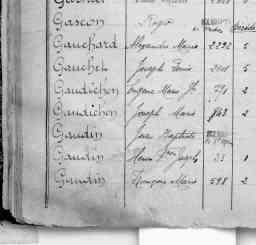 Gascon Roger
Gauchard Alexandre Marie 2292 5
Gauchet Joseph Louis 5
Gaudichon Eugène Marie Jh 791 2
Gaudichon Joseph Marie 843 2
Gaudin Jean Baptiste
Gaudin Henri Joseph 35 1
Gaudin François Marie 598 2